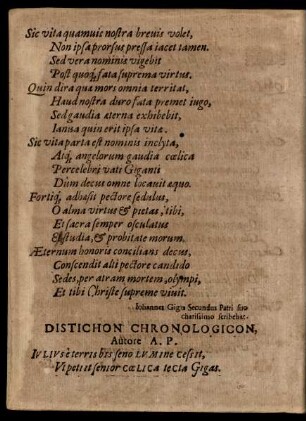 Sic vita quamuis nostra breuis volet,
Non ipsa prorsus pressa iacet tamen.
Sed vera nominis vigebit
Post quoq; fata suprema virtus.
Quin dira qua mors omnia territat,
Haud nostra duro fata premet iugo,
Sed gaudia æterna exhibebit,
Ianua quin erit ipsa vitæ.
Sic vita parta est nominis inclyta,
Atq; angelorum gaudia cœlica
Percelebri vati Giganti
Dum decus omne locauit æquo.
Fortiq; adhæsit pectore sedulus,
O alma virtus & pietas, tibi,
Et sacra semper osculatus
Et studia, & probitate morum.
Æternum honoris concilians decus,
Conscendit alti pectore candido
Sedes, per atram mortem, olympi,
Et tibi Christe supreme viuit.
Iohannes Gigas Secundus Patri suo
charissimo scribebat.
DISTICHON CHRONOLOGICON,
Autore A. P.
IVLIVs è terris bis seno LVMIne CessIt,
Vt petIIt senior CœLICa teCta Gigas.